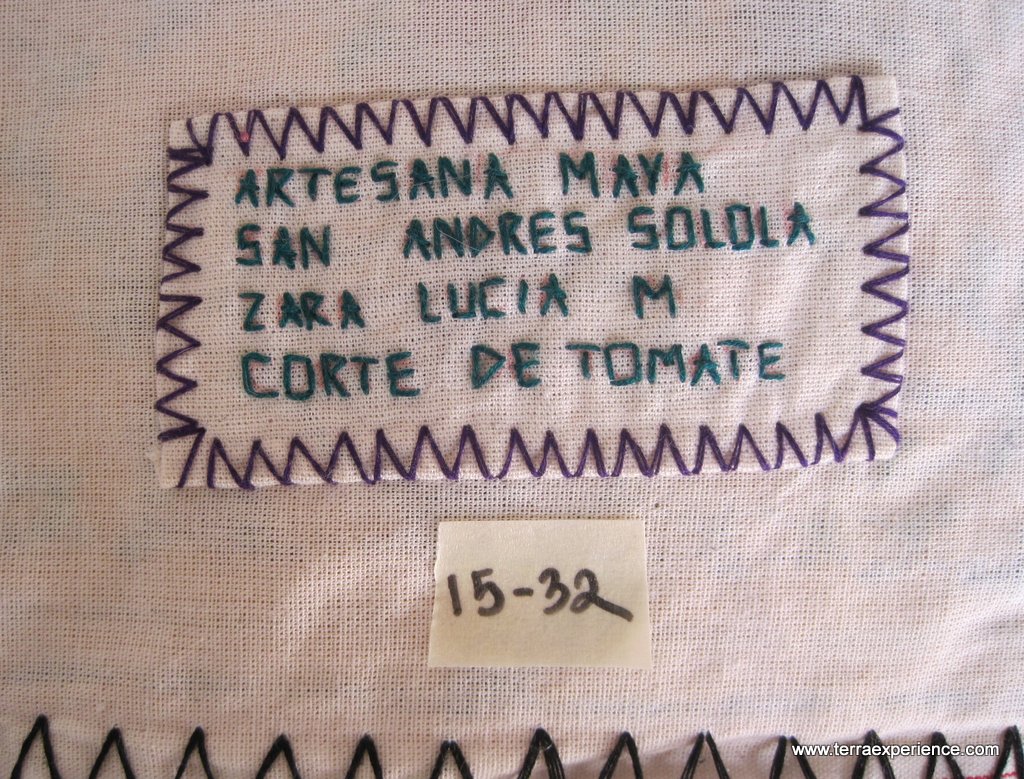 ARTESANA MAYA
SAN ANDRES SOLOLA
ZARA LUCIA M
CORTE DE TOMATE
15-32
www.terraexperience.com